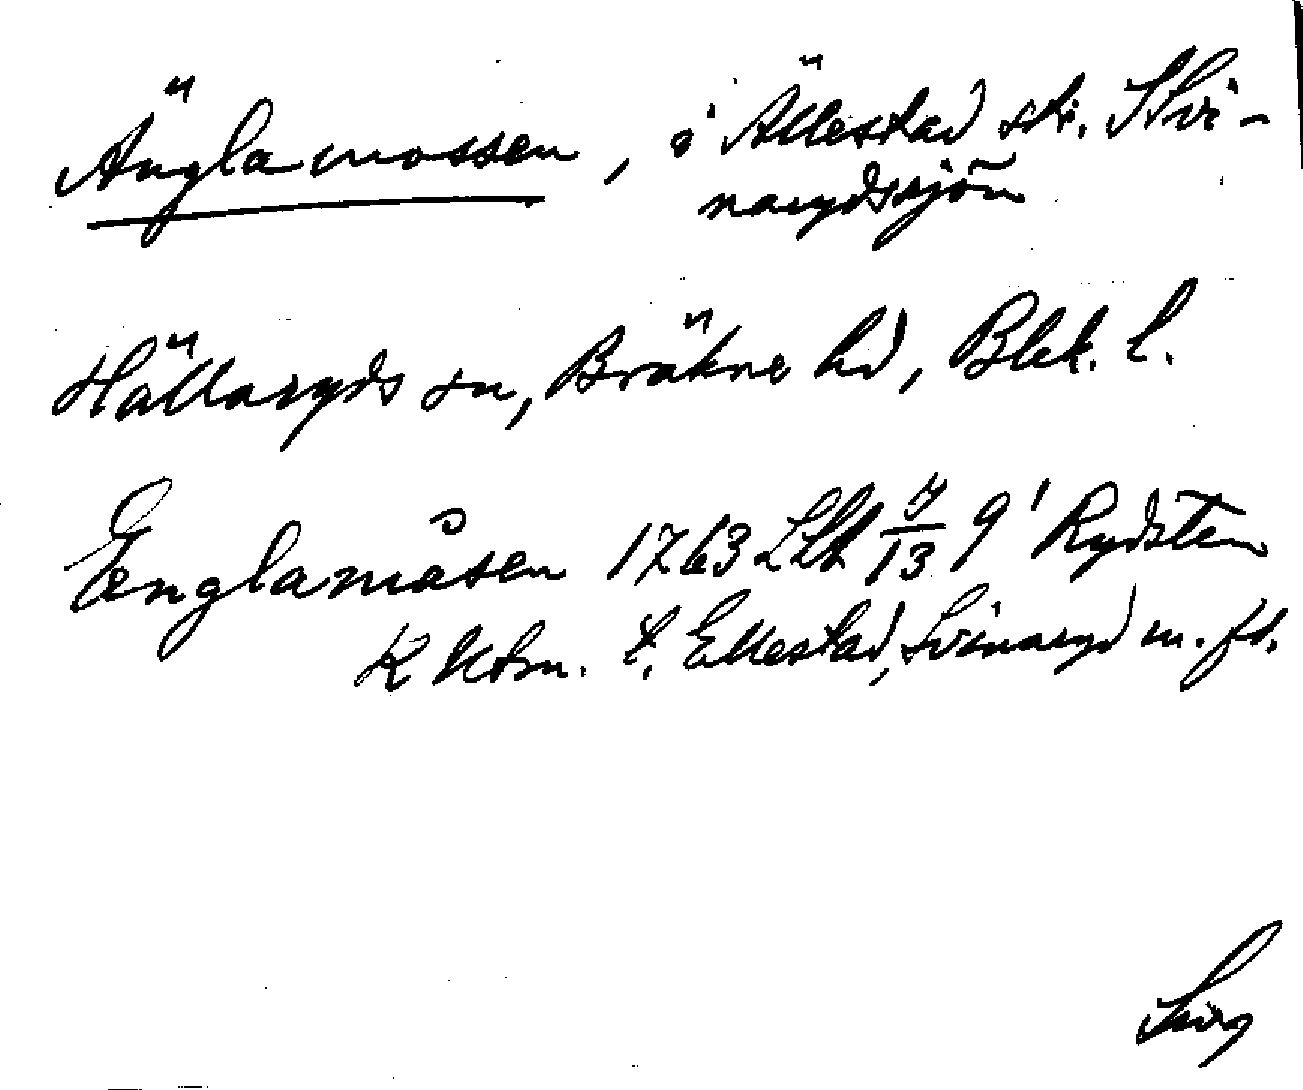 Änglamossen, i Ällestad sk. Svi-
narydssjön
Hällaryds sn, Bräkne hd, Blek. l.
Englamåsen 1763 Lth 7/13 9' Rydsten
K Utm. t. Ellestad, Svinaryd m. fl.